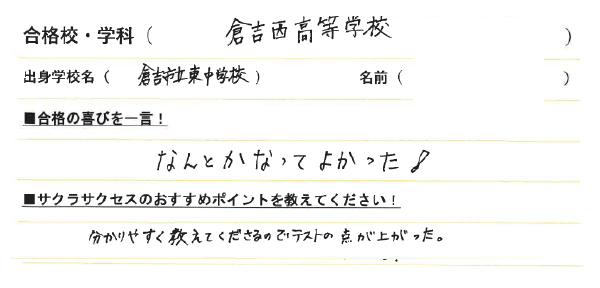 合格校・学科（ 倉吉西高等学校 ）
出身学校名（ 倉吉市立東中学校 ） 名前（ ）
■合格の喜びを一言！
なんとかなってよかった！
■サクラサクセスのおすすめポイントを教えてください！
分かりやすく教えてくださるのでテストの点が上がった。